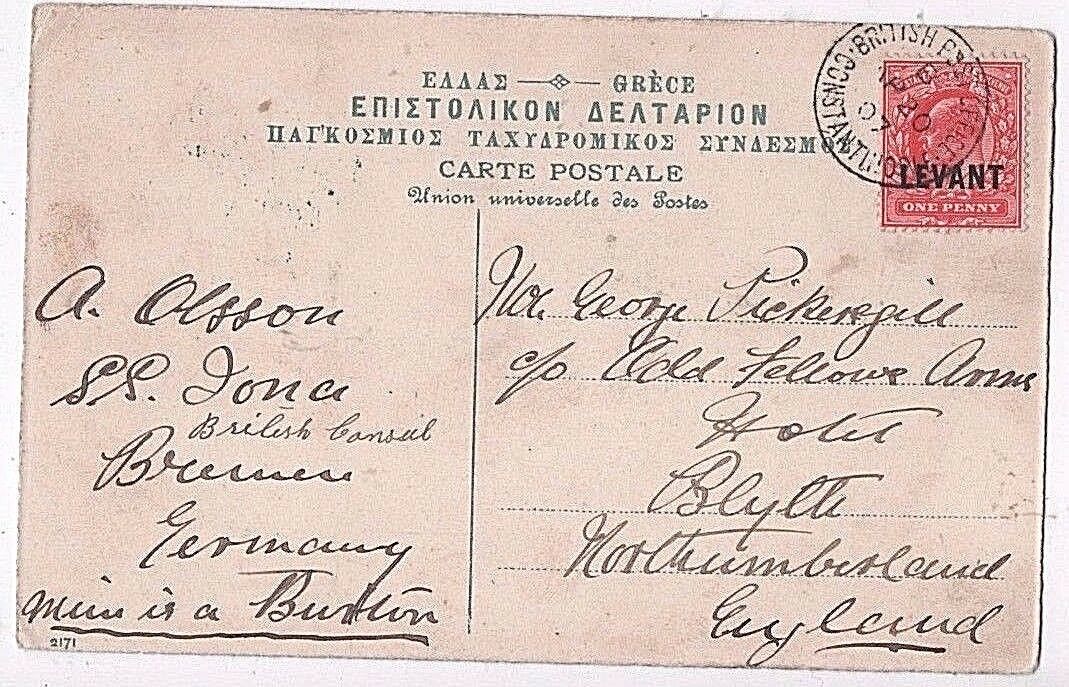 ΕΛΛΑΣ — GRÈCE
ΕΠΙΣΤΟΛΙΚΟΝ ΔΕΛΤΑΡΙΟΝ
ΠΑΓΚΟΣΜΙΟΣ ΤΑΧΥΔΡΟΜΙΚΟΣ ΣΥΝΔΕΣΜΟΣ
CARTE POSTALE
Union universelle des Postes
BRITISH
LEVANT
ONE PENNY
A. Olsson
SS. Iona
British Consul
Bremen
Germany
mine is a Burton
2171
Mr. George Pickersgill
c/o Odd Fellows Arms
Hotel
Blyth
Northumberland
England